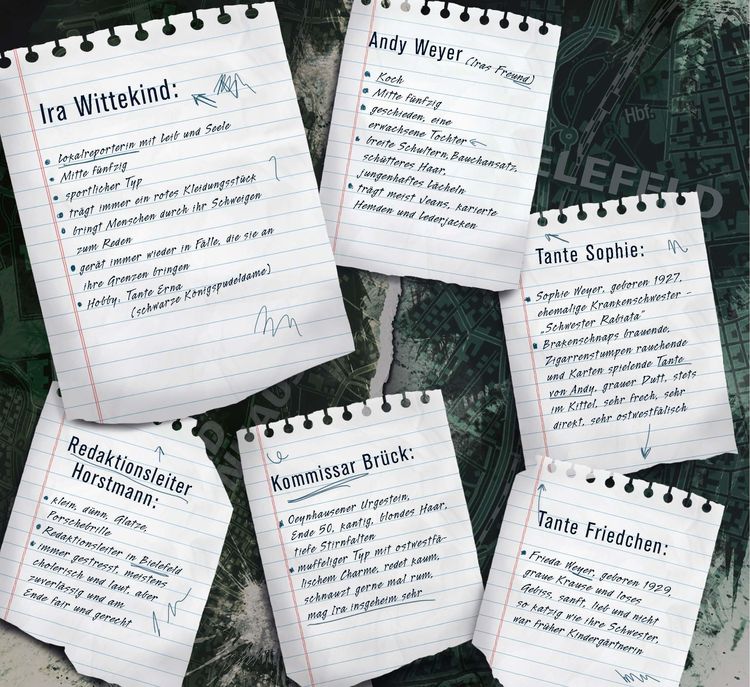 Ira Wittekind:
Lokalreporterin mit Leib und Seele
Mitte fünfzig
sportlicher Typ
trägt immer ein rotes Kleidungsstück
bringt Menschen durch ihr Schweigen
zum Reden
gerät immer wieder in Fälle, die sie an
ihre Grenzen bringen
Hobby: Tante Erna
(schwarze Königspudeldame)
Andy Weyer (Iras Freund)
Koch
Mitte fünfzig
geschieden, eine
erwachsene Tochter
breite Schultern, Bauchansatz,
schütteres Haar,
jungenhaftes Lächeln
trägt meist Jeans, karierte
Hemden und Lederjacken
Hbf.
IELEFELD
Tante Sophie:
Sophie Weyer, geboren 1927,
ehemalige Krankenschwester –
„Schwester Rabiata"
Brakenschnaps brauende,
Zigarrenstumpen rauchende
und Karten spielende Tante
von Andy, grauer Dutt, stets
im Kittel, sehr frech, sehr
direkt, sehr ostwestfälisch
Redaktionsleiter
Horstmann:
klein, dünn, Glatze,
Porschebrille
Redaktionsleiter in Bielefeld
immer gestresst, meistens
cholerisch und laut, aber
zuverlässig und am
Ende fair und gerecht
Kommissar Brück:
Oeynhausener Urgestein,
Ende 50, kantig, blondes Haar,
tiefe Stirnfalten
muffeliger Typ mit ostwestfä-
lischem Charme, redet kaum,
schnauzt gerne mal rum,
mag Ira insgeheim sehr
Tante Friedchen:
Frieda Weyer, geboren 1929,
graue Krause und loses
Gebiss, sanft, lieb und nicht
so katzig wie ihre Schwester,
war früher Kindergärtnerin